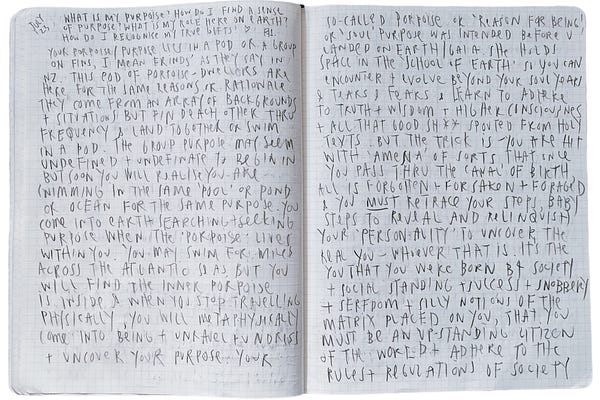 NOV 23
WHAT IS MY PURPOISE? HOW DO I FIND A SENSE
OF PURPOSE? WHAT IS MY ROLE HERE ON EARTH?
HOW DO I RECOGNISE MY TRUE GIFTS?
YOUR PORPOISE/PURPOSE LIES IN A POD OR A GROUP
OF FINS, I MEAN FRINDS AS THEY SAY IN
NZ. THIS POD OF PORPOISE-DWELLERS ARE
HERE FOR THE SAME REASONS OR RATIONALE
THEY COME FROM AN ARRAY OF BACKGROUNDS
+ SITUATIONS BUT FIND EACH OTHER THRU
FREQUENCY & LAND TOGETHER OR SWIM
IN A POD. THE GROUP PURPOSE MAY SEEM
UNDEFINED + UNDEFINATE TO BEGIN IN
BUT SOON YOU WILL REALISE YOU ARE
SWIMMING IN THE SAME 'POOL' OR POND
OR OCEAN FOR THE SAME PURPOSE. YOU
COME INTO EARTH SEARCHING + SEEKING
PURPOSE WHEN THE 'PORPOISE' LIVES
WITHIN YOU. YOU MAY SWIM FOR MILES
ACROSS THE ATLANTIC SEAS BUT YOU
WILL FIND THE INNER PORPOISE
IS INSIDE & WHEN YOU STOP TRAVELLING
PHYSICALLY, YOU WILL METAPHYSICALLY
COME INTO BEING + UNRAVEL
+ UNCOVER YOUR PURPOSE. YOUR
SO-CALLED PORPOISE OR 'REASON FOR BEING'
OR 'SOUL' PURPOSE WAS INTENDED BEFORE U
LANDED ON EARTH/GAIA. SHE HOLDS
SPACE IN THE 'SCHOOL OF EARTH' SO YOU CAN
ENCOUNTER + EVOLVE BEYOND YOUR SOUL YEARS
& TEARS & FEARS & LEARN TO ADHERE
TO TRUTH + WISDOM + HIGHER CONSCIOUSNESS
+ ALL THAT GOOD SH** SPOUTED FROM HOLY
TEXTS. BUT THE TRICK IS - YOU ARE HIT
WITH 'AMENA' OF SORTS THAT ONCE
YOU PASS THRU THE CANAL OF BIRTH
ALL IS FORGOTTEN + FORSAKEN + FORAGED
& YOU MUST RETRACE YOUR STEPS, BABY
STEPS TO REVEAL AND RELINQUISH
YOUR 'PERSON-ALITY' TO UNCOVER THE
REAL YOU - WHOEVER THAT IS. IT'S THE
YOU THAT YOU WERE BORN B4 SOCIETY
+ SOCIAL STANDING + SUCCESS + SNOBBERY
+ SERFDOM + SILLY NOTIONS OF THE
MATRIX PLACED ON YOU, THAT YOU
MUST BE AN UP-STANDING CITIZEN
OF THE WORLD + ADHERE TO THE
RULES + REGULATIONS OF SOCIETY